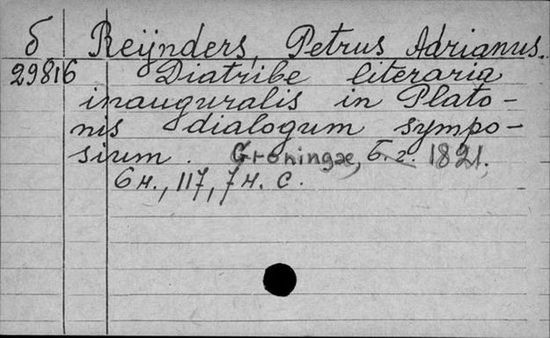 б Reijnders, Petrus Adrianus.
29816 Diatribe literaria
inauguralis in Plato-
nis dialogum sympo-
sium. Groningæ, б.г. 1821.
6 н., 117, 7 н. с.